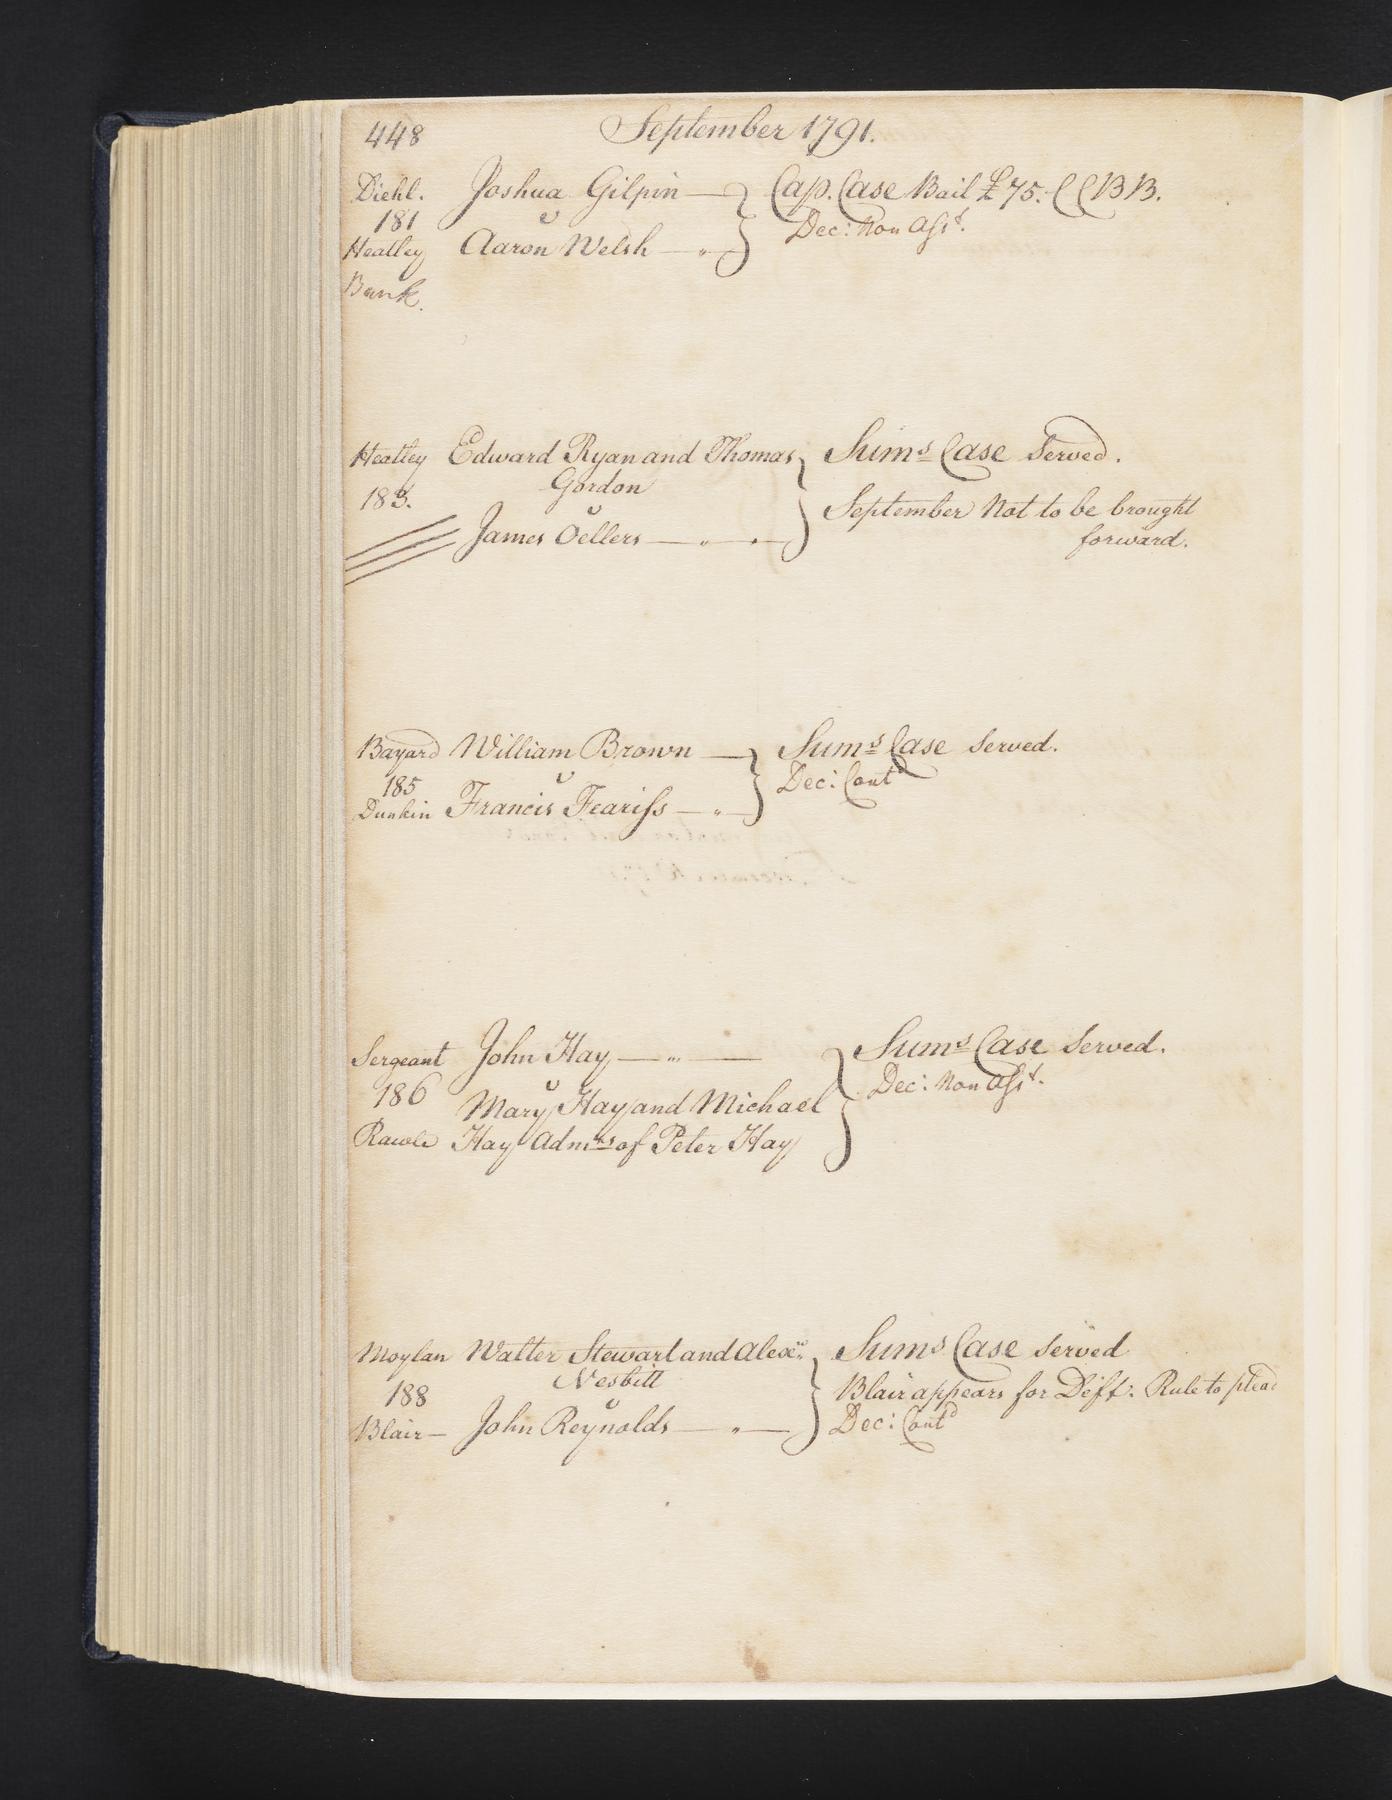 448 September 1791.
Diehl. Joshua Gilpin — Cap. Case Bail £75. CCBB.
181 v Dec: Non Asst.
Heatley Aaron Welsh — " —
Bank.
Heatley Edward Ryan and Thomas Sums Case Served.
Gordon
183. v September Not to be brought
James Oellers — " — " — forward.
Bayard William Brown — Sums Case Served.
185 v Dec: Contd
Dunkin Francis Feariss — " —
Sergeant John Hay — " — Sums Case Served.
186 v Dec: Non Asst.
Mary Hay and Michael
Rawle Hay Admrs of Peter Hay
Moylan Walter Stewart and Alexr. Sums Case Served
Nesbitt
188 v Blair appears for Deft. Rule to plead
Blair — John Reynolds — " — Dec: Contd